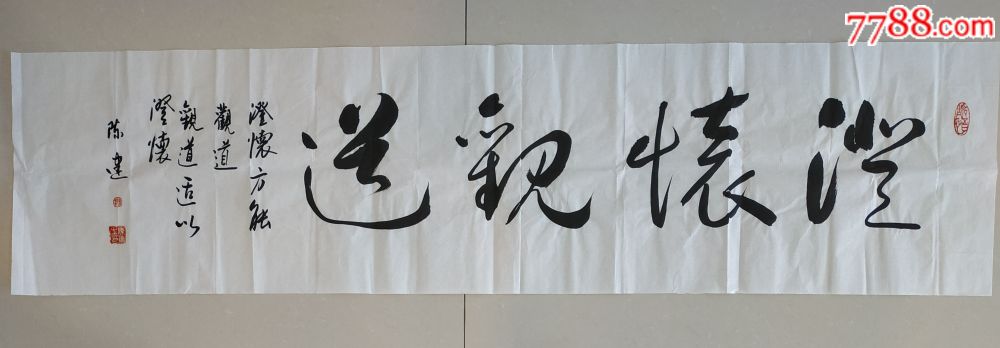 7788.com
澄懷觀道
澄懷方能
觀道
觀道适以
澄懷
陈建